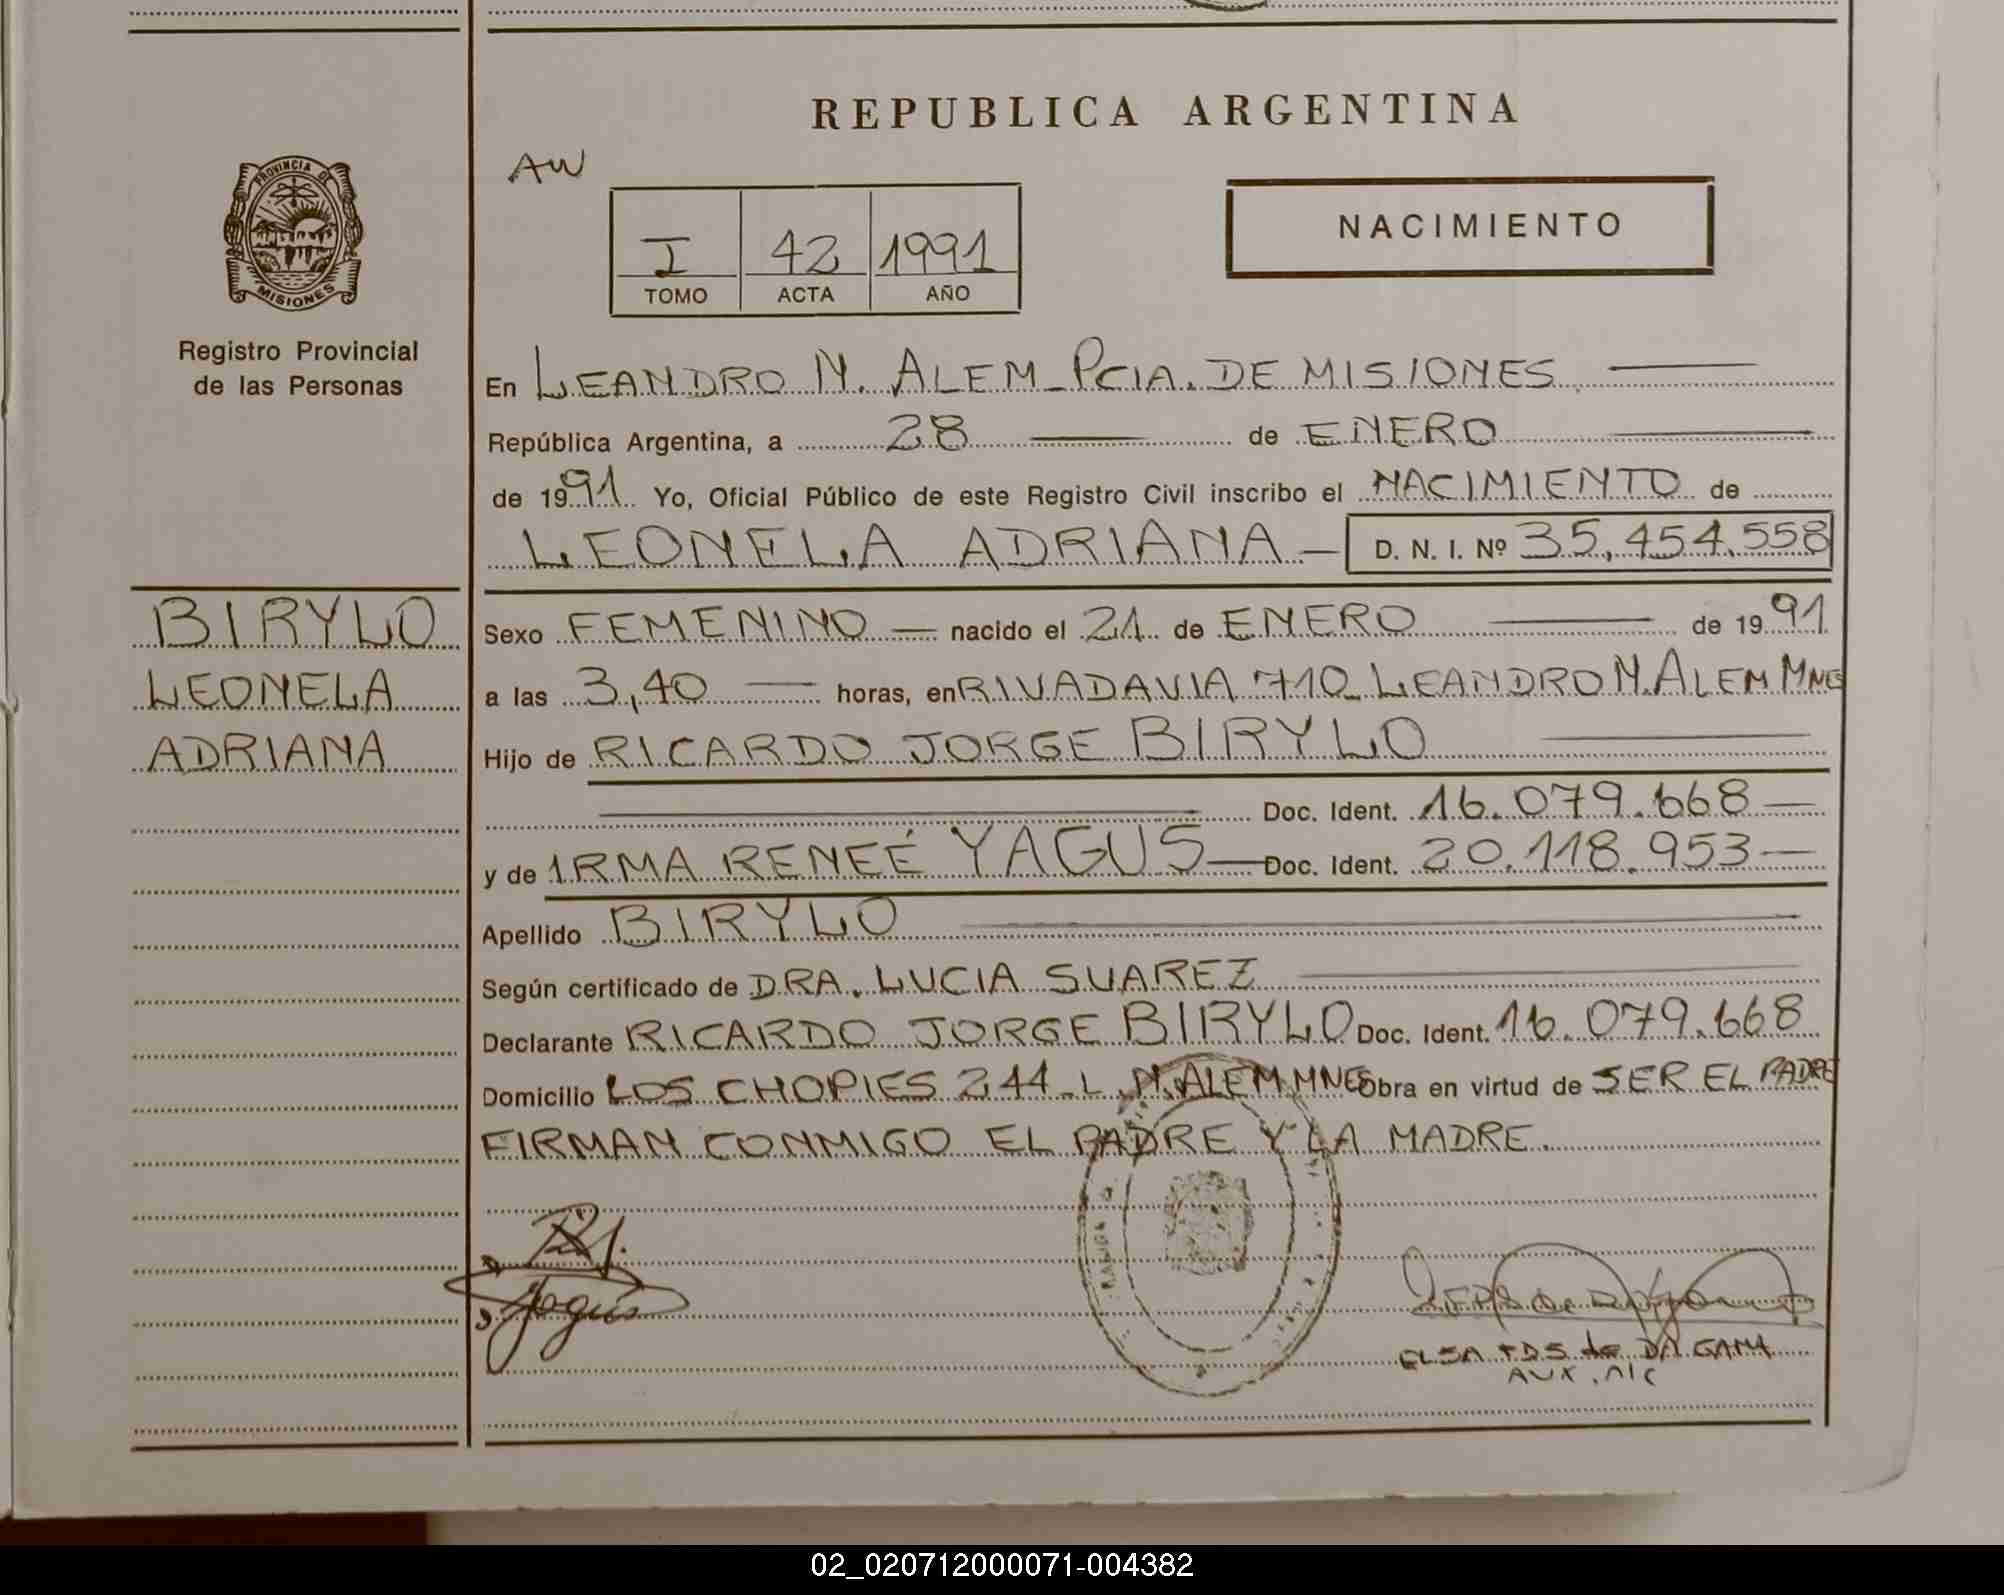 REPUBLICA ARGENTINA
AW
PROVINCIA DE
MISIONES
Registro Provincial
de las Personas
I 42 1991
TOMO ACTA AÑO
NACIMIENTO
En LEANDRO N. ALEM - PCIA. DE MISIONES
República Argentina, a 28 de ENERO
de 1991 Yo, Oficial Público de este Registro Civil inscribo el NACIMIENTO de
LEONELA ADRIANA — D. N. I. Nº 35,454.558
BIRYLO
LEONELA
ADRIANA
Sexo FEMENINO — nacido el 21 de ENERO — de 1991
a las 3,40 — horas, en RIVADAVIA 710 - LEANDRO N. ALEM MNES
Hijo de RICARDO JORGE BIRYLO
Doc. Ident. 16.079.668 —
y de IRMA RENEÉ YAGUS — Doc. Ident. 20.118.953 —
Apellido BIRYLO
Según certificado de DRA. LUCIA SUAREZ
Declarante RICARDO JORGE BIRYLO Doc. Ident. 16.079.668
Domicilio LOS CHOPIES 244 - L. N. ALEM MNES Obra en virtud de SER EL PADRE
FIRMAN CONMIGO EL PADRE Y LA MADRE.
Yagus
ELSA de DA GAMA
02_020712000071-004382